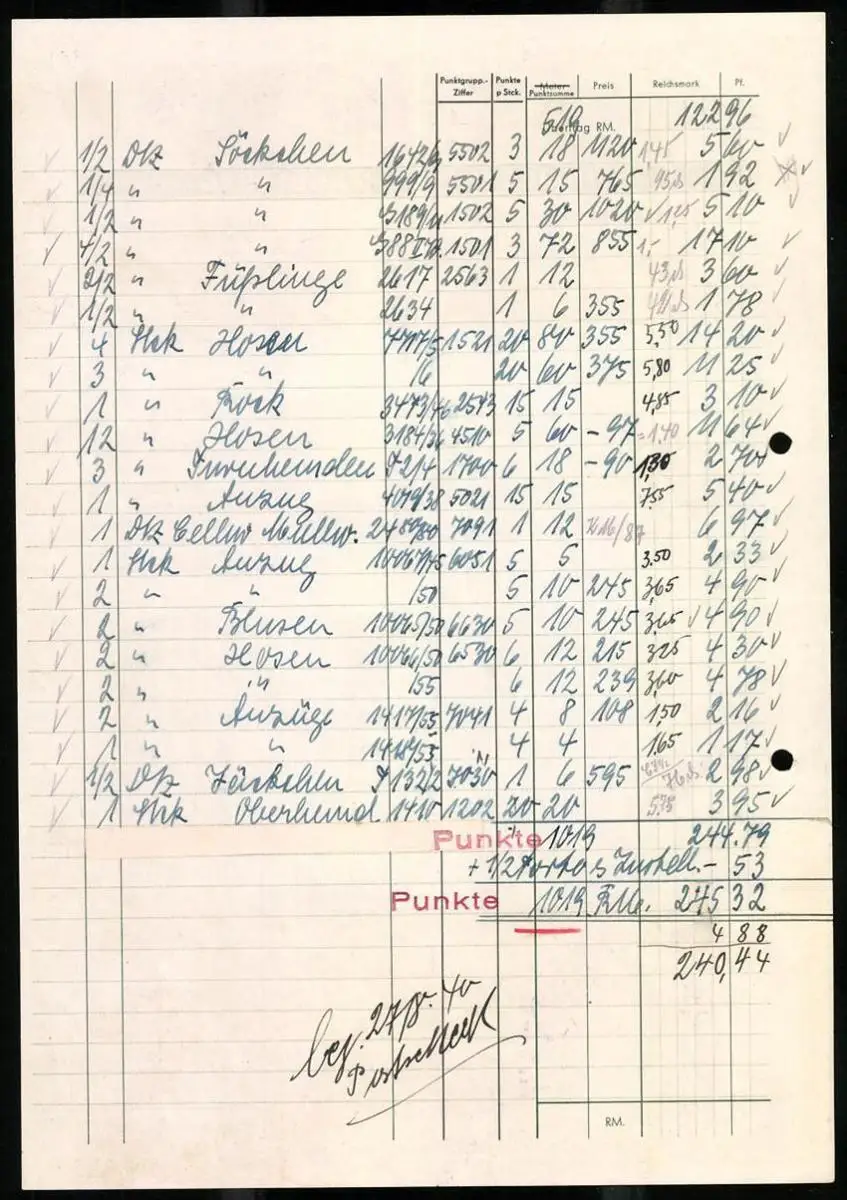 Punktgrupp.-Ziffer Punkte p Stck. Meter Punktsumme Preis Reichsmark Pf.
519 122 96
Übertrag RM.
1/2 Dtz Söckchen 5502 3 18 1120 1,45 5 60
1/4 " " 999/9 5501 5 15 765 95 1 92
1/2 " " 1502 5 30 1020 1,25 5 10
4/2 " " 1501 3 72 855 1,- 17 10
2/2 " Füßlinge 2617 2563 1 12 43 3 60
1/2 " " 2634 1 6 355 42 1 78
4 Stck Hosen 1521 20 80 355 5,50 14 20
3 " " 16 20 60 375 5,80 11 25
1 " Rock 3473/46 2543 15 15 4,85 3 10
12 " Hosen 3184/36 4510 5 60 -97 1,40 11 64
3 " Turnhemden 1700 6 18 -90 1,35 2 70
1 " Anzug 4079/38 5021 15 15 7,55 5 40
1 Dtz 7091 1 12 6 97
1 Stck Anzug 10067/45 6051 5 5 3,50 2 33
2 " " /50 5 10 245 3,65 4 90
2 " Blusen 10065/50 6630 5 10 245 3,65 4 90
2 " Hosen 10066/50 6530 6 12 215 3,25 4 30
2 " " /55 6 12 239 3,60 4 78
2 " Anzüge 1417/55 7041 4 8 108 1,50 2 16
1 " " 1418/55 " 4 4 1,65 1 17
1/2 Dtz Jäckchen 7030 1 6 595 2 98
1 Stck Oberhemd 1410 1202 20 20 5,75 3 95
Punkte 1019 244.79
+ 1/2 Porto & Zustell. - 53
Punkte 1019 RM. 245 32
4 88
240,44
bez. 27/8. 40
Postscheck
RM.